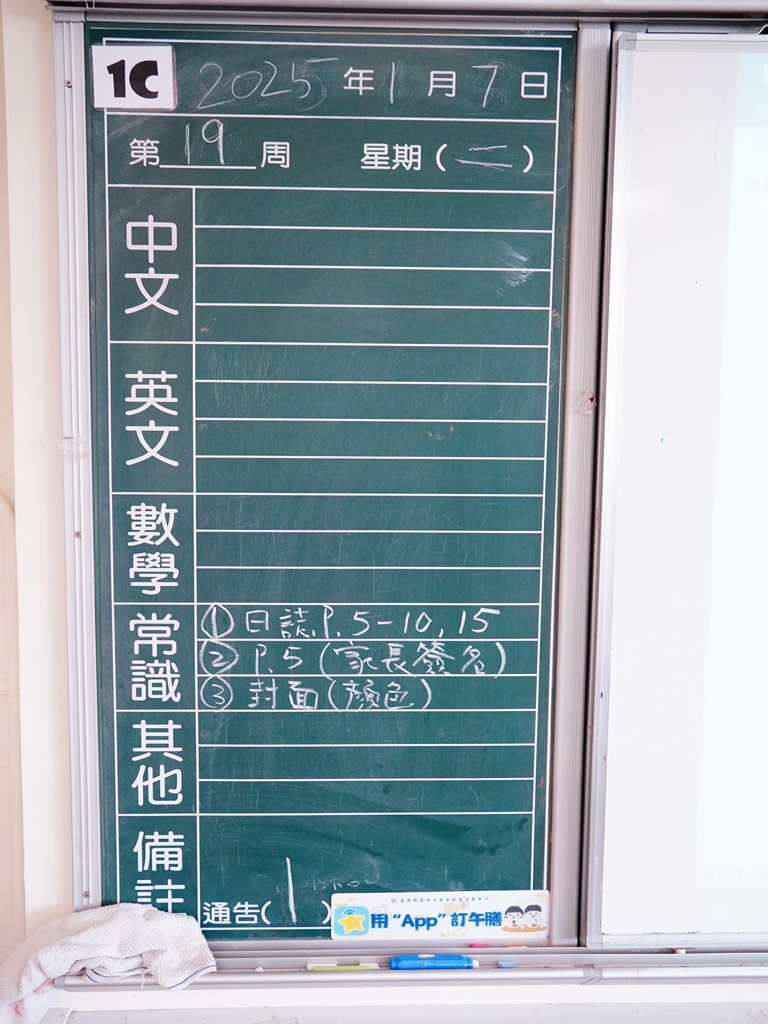 1C
2025年1月7日
第19周 星期(二)
中文
英文
數學
常識
① 日誌P.5-10,15
② P.5(家長簽名)
③ 封面(顏色)
其他
備註
通告(1)
用“App”訂午膳